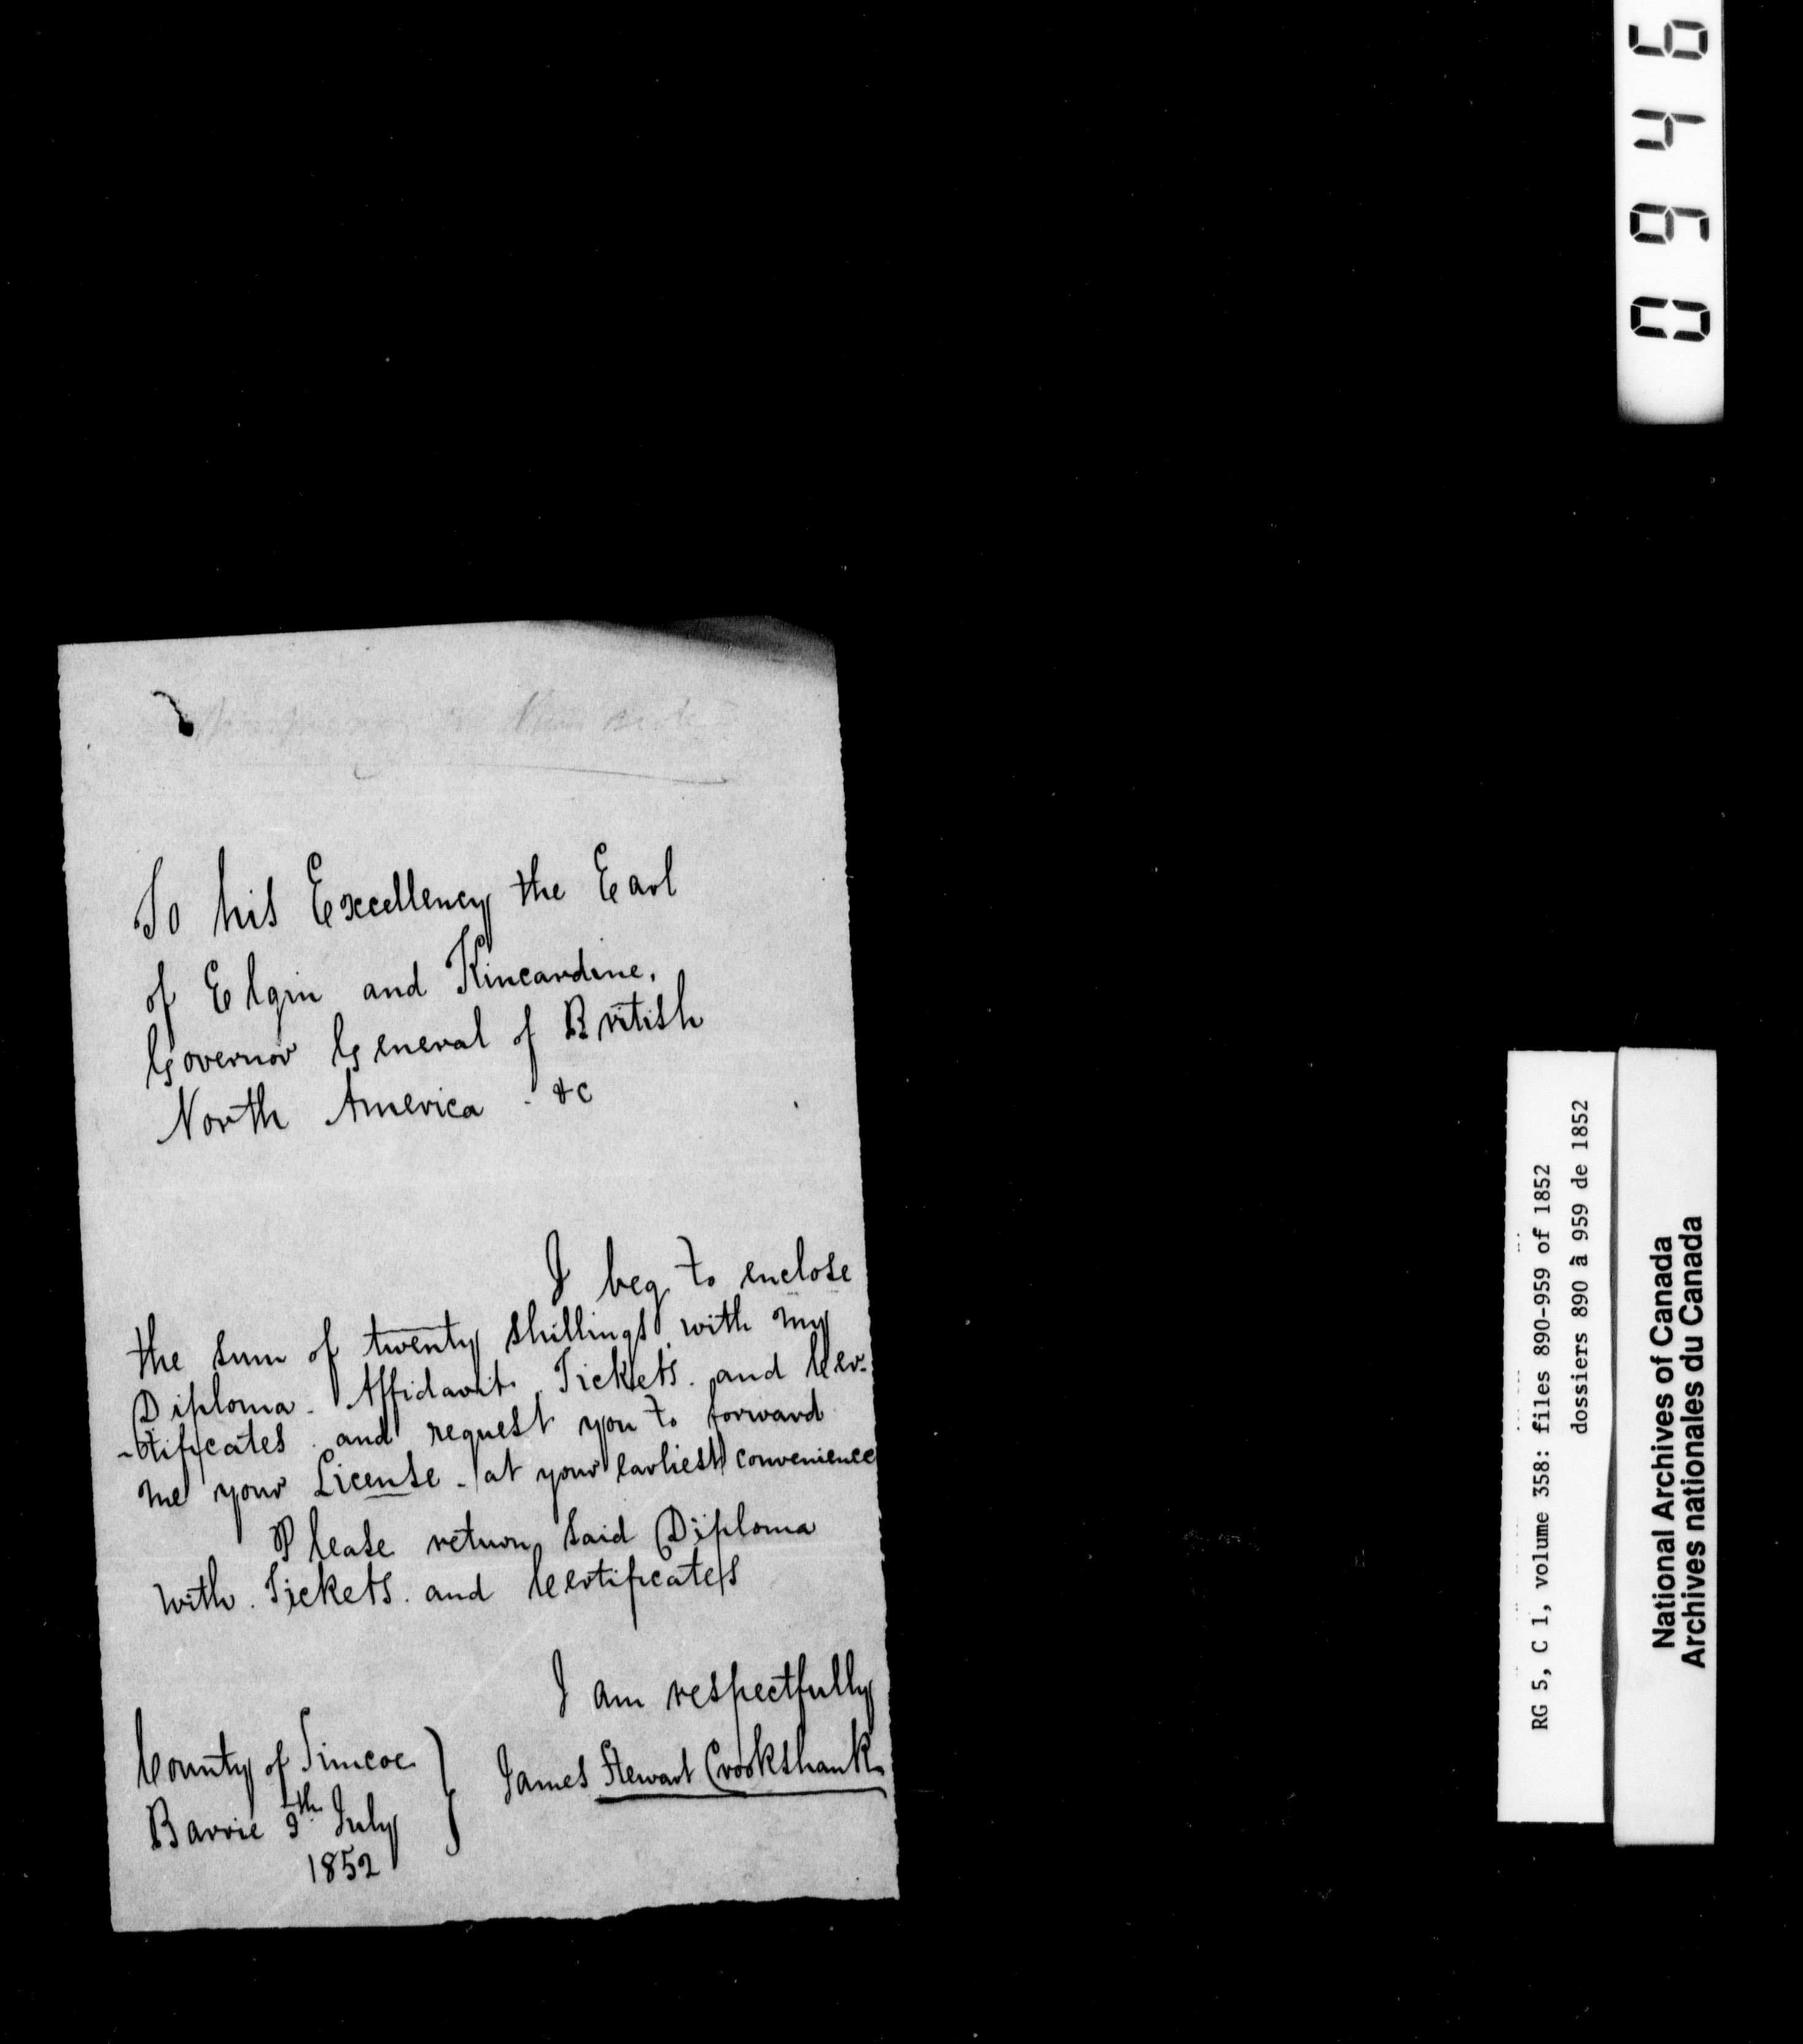 To his Excellency the Earl
of Elgin and Kincardine,
Governor General of British
North America &c
I beg to enclose
the sum of twenty shillings with my
Diploma. Affidavit. Tickets. and Cer-
-tificates and request you to forward
me your License - at your earliest convenience
Please return said Diploma
with Tickets. and Certificates
I am respectfully
James Stewart Crookshank
County of Simcoe
Barrie 9th July
1852
0946
RG 5, C 1, volume 358: files 890-959 of 1852
dossiers 890 à 959 de 1852
National Archives of Canada
Archives nationales du Canada